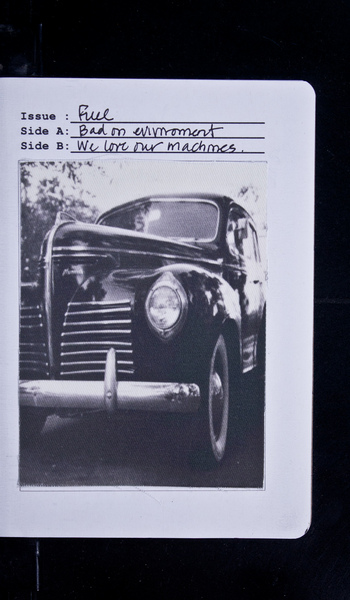 Issue : Fuel
Side A: Bad on evivroment
Side B: We love our machines.